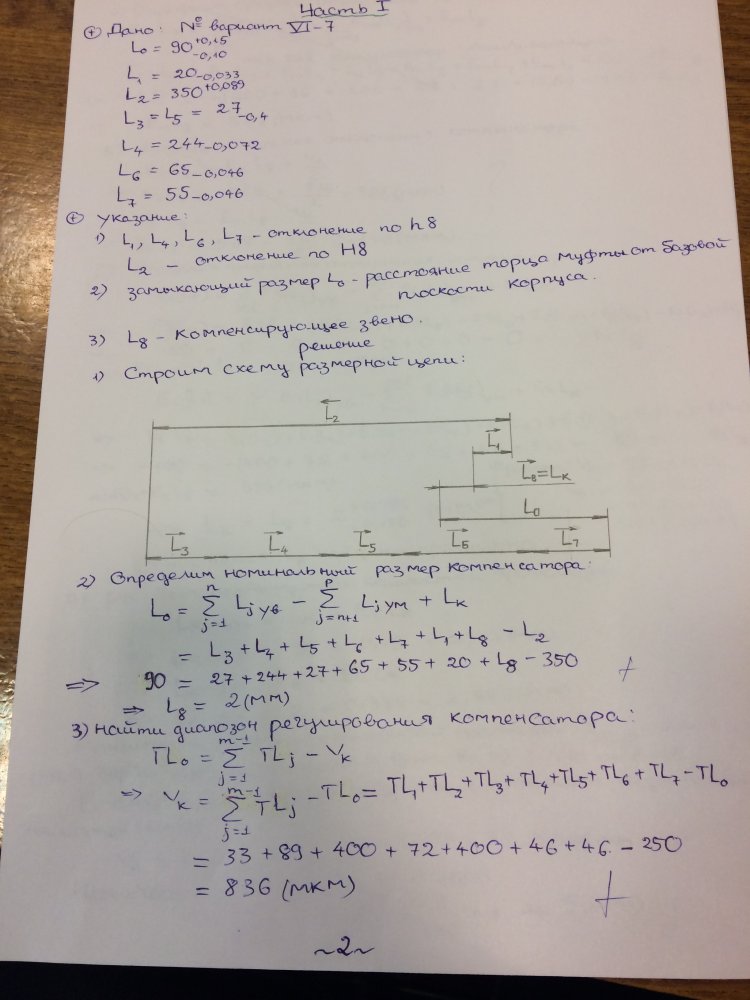 Часть I
⊕ Дано: № вариант VI-7
L₀ = 90 +0,15 -0,10
L₁ = 20-0,033
L₂ = 350 +0,089
L₃ = L₅ = 27-0,4
L₄ = 244-0,072
L₆ = 65-0,046
L₇ = 55-0,046
⊕ Указание:
1) L₁, L₄, L₆, L₇ - отклонение по h8
L₂ - отклонение по H8
2) замыкающий размер L₀ - расстояние торца муфты от базовой
плоскости корпуса.
3) L₈ - компенсирующее звено.
решение
1) Строим схему размерной цепи:
L₂
L₁
L₈=Lк
L₀
L₃ L₄ L₅ L₆ L₇
2) Определим номинальный размер компенсатора:
L₀ = n Σ j=1 Lj ув - p Σ j=n+1 Lj ум + Lк
= L₃ + L₄ + L₅ + L₆ + L₇ + L₁ + L₈ - L₂
⇒ 90 = 27 + 244 + 27 + 65 + 55 + 20 + L₈ - 350 +
⇒ L₈ = 2 (мм)
3) найти диапозон регулирования компенсатора:
TL₀ = m-1 Σ j=1 TLj - Vк
⇒ Vк = m-1 Σ j=1 TLj - TL₀ = TL₁ + TL₂ + TL₃ + TL₄ + TL₅ + TL₆ + TL₇ - TL₀
= 33 + 89 + 400 + 72 + 400 + 46 + 46 - 250
= 836 (мкм) +
~2~